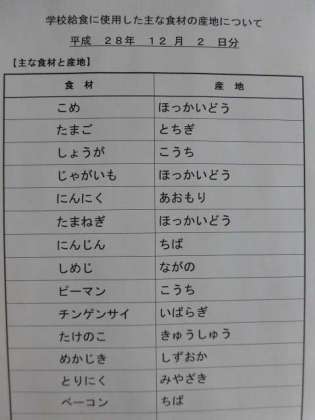 学校給食に使用した主な食材の産地について
平成 28年 12 月 2 日分
【主な食材と産地】
食 材 産 地
こめ ほっかいどう
たまご とちぎ
しょうが こうち
じゃがいも ほっかいどう
にんにく あおもり
たまねぎ ほっかいどう
にんじん ちば
しめじ ながの
ピーマン こうち
チンゲンサイ いばらぎ
たけのこ きゅうしゅう
めかじき しずおか
とりにく みやざき
ベーコン ちば